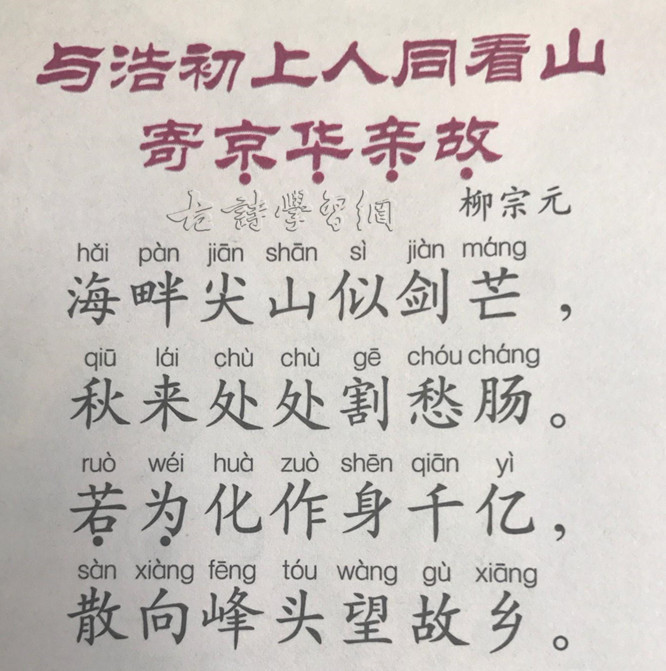 与浩初上人同看山
寄京华亲故
古詩學習網
柳宗元
hǎi pàn jiān shān sì jiàn máng
海畔尖山似剑芒，
qiū lái chù chù gē chóu cháng
秋来处处割愁肠。
ruò wéi huà zuò shēn qiān yì
若为化作身千亿，
sàn xiàng fēng tóu wàng gù xiāng
散向峰头望故乡。